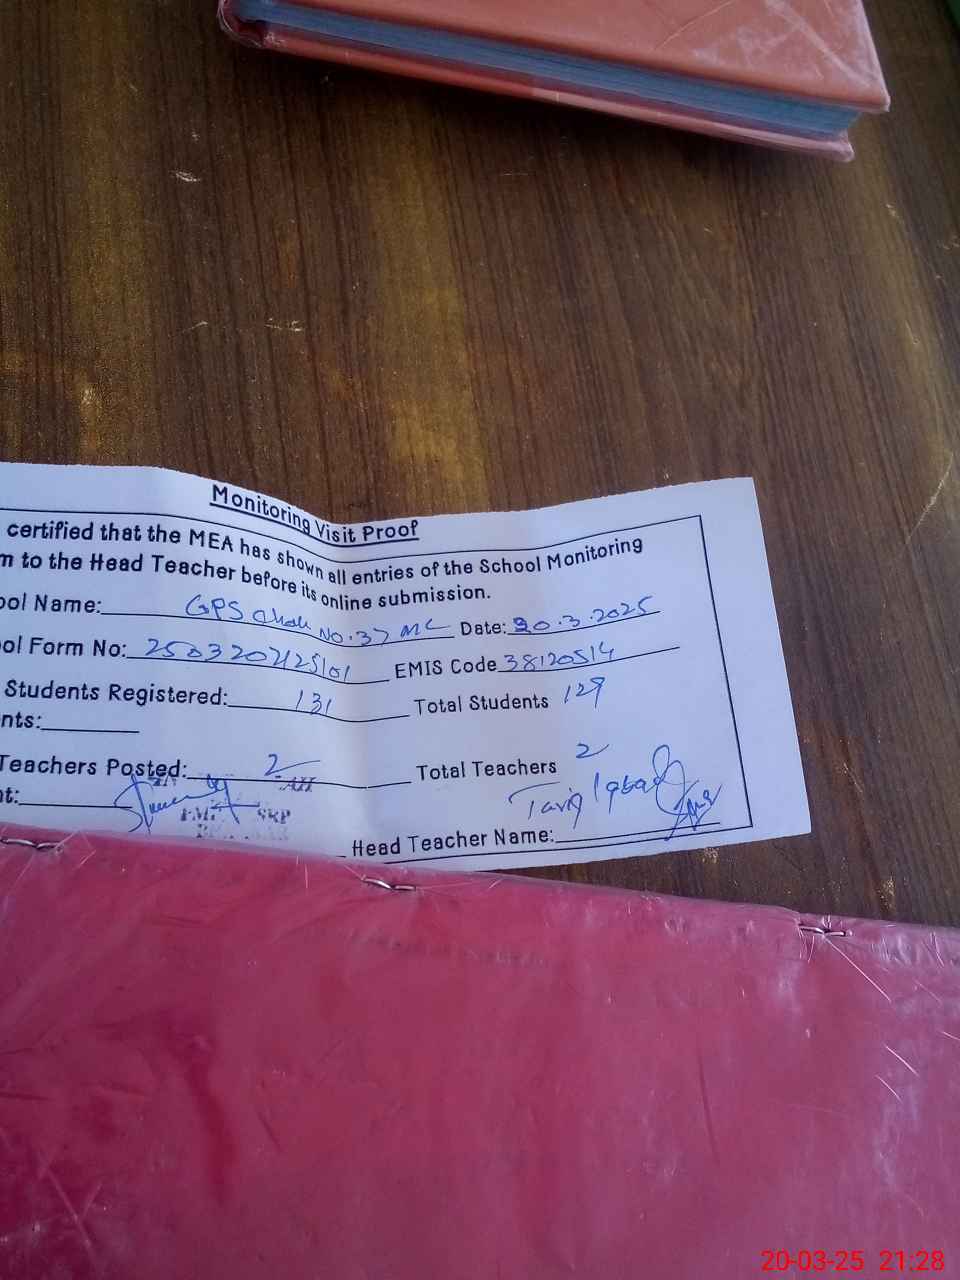 Monitoring Visit Proof
certified that the MEA has shown all entries of the School Monitoring
m to the Head Teacher before its online submission.
ool Name: GPS Chak No.37 MC Date: 20.3.2025
ool Form No: EMIS Code 38120514
Students Registered: 131 Total Students 129
nts:
Teachers Posted: 2 Total Teachers 2
nt: Tariq Iqbal
Head Teacher Name:
20-03-25 21:28